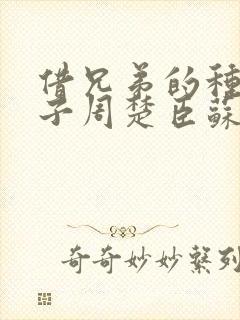 借兄弟的種
子周楚臣蘇
奇奇妙妙繫列